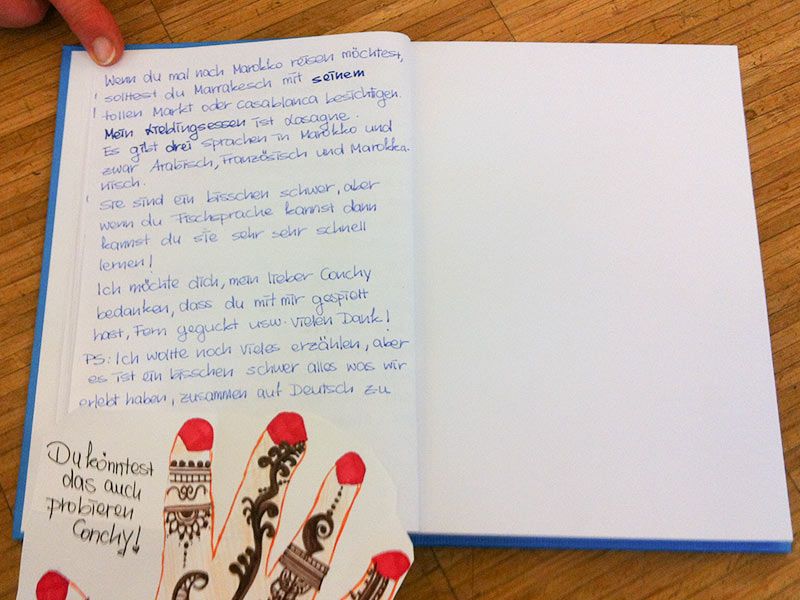 Wenn du mal nach Marokko reisen möchtest,
! solltest du Marrakesch mit seinem
! tollen Markt oder Casablanca besichtigen.
Mein Lieblingsessen ist Lasagne.
Es gibt drei Sprachen in Marokko und
zwar Arabisch, Französisch und Marokka-
nisch.
! Sie sind ein bisschen schwer, aber
wenn du Fischsprache kannst dann
kannst du sie sehr sehr schnell
lernen!
Ich möchte dich, mein lieber Conchy
bedanken, dass du mit mir gespielt
hast, Fern geguckt usw. Vielen Dank!
PS: Ich wollte noch vieles erzählen, aber
es ist ein bisschen schwer alles was wir
erlebt haben, zusammen auf Deutsch zu
Du könntest
das auch
probieren
Conchy!